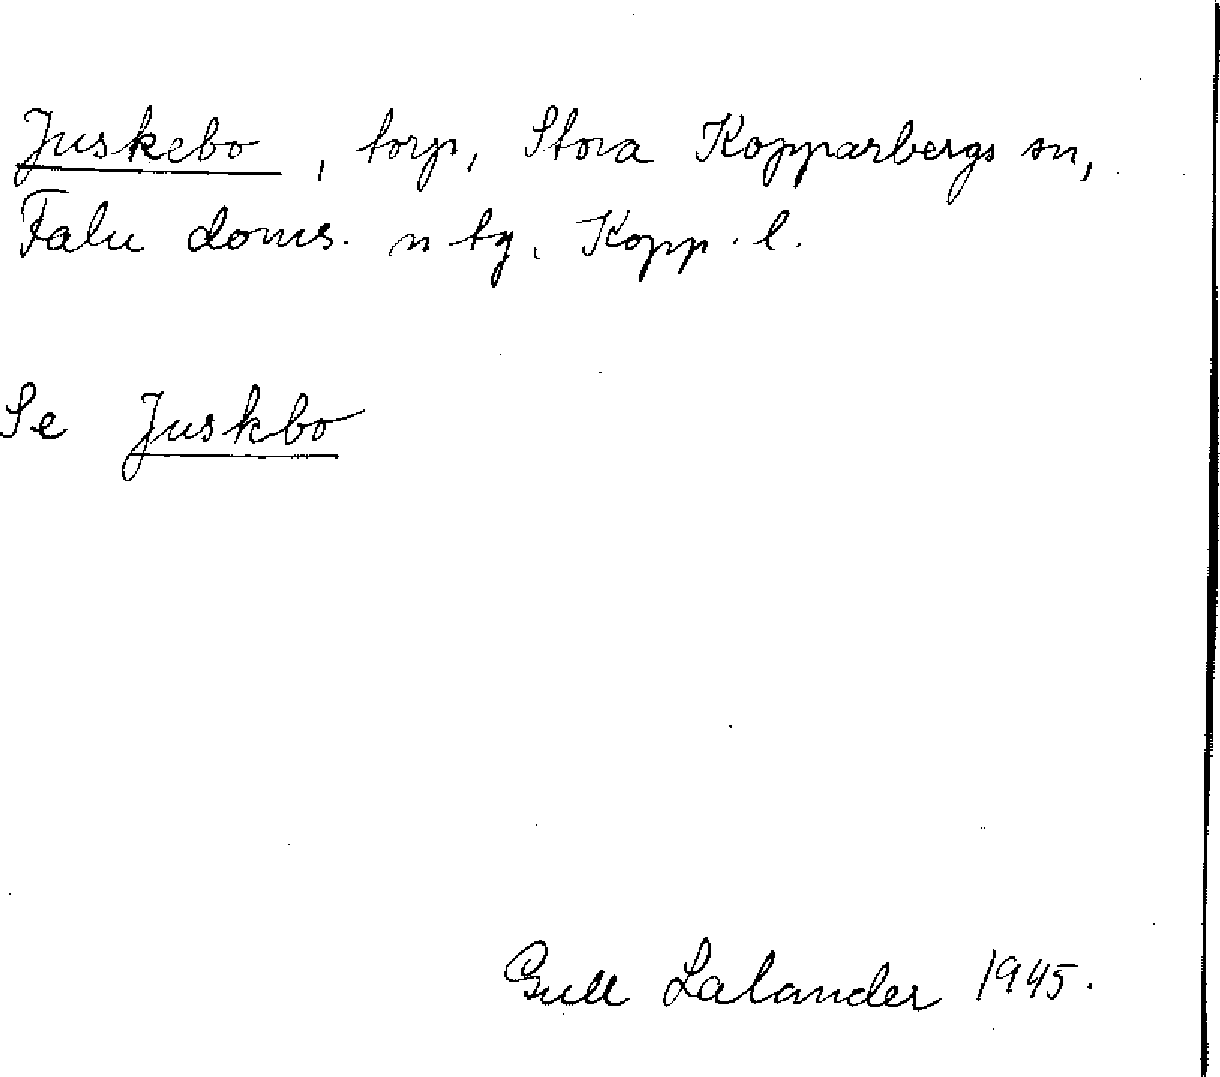 Juskebo, torp, Stora Kopparbergs sn,
Falu doms. n tg. Kopp. l.
Se Juskbo
Gull Lalander 1945.